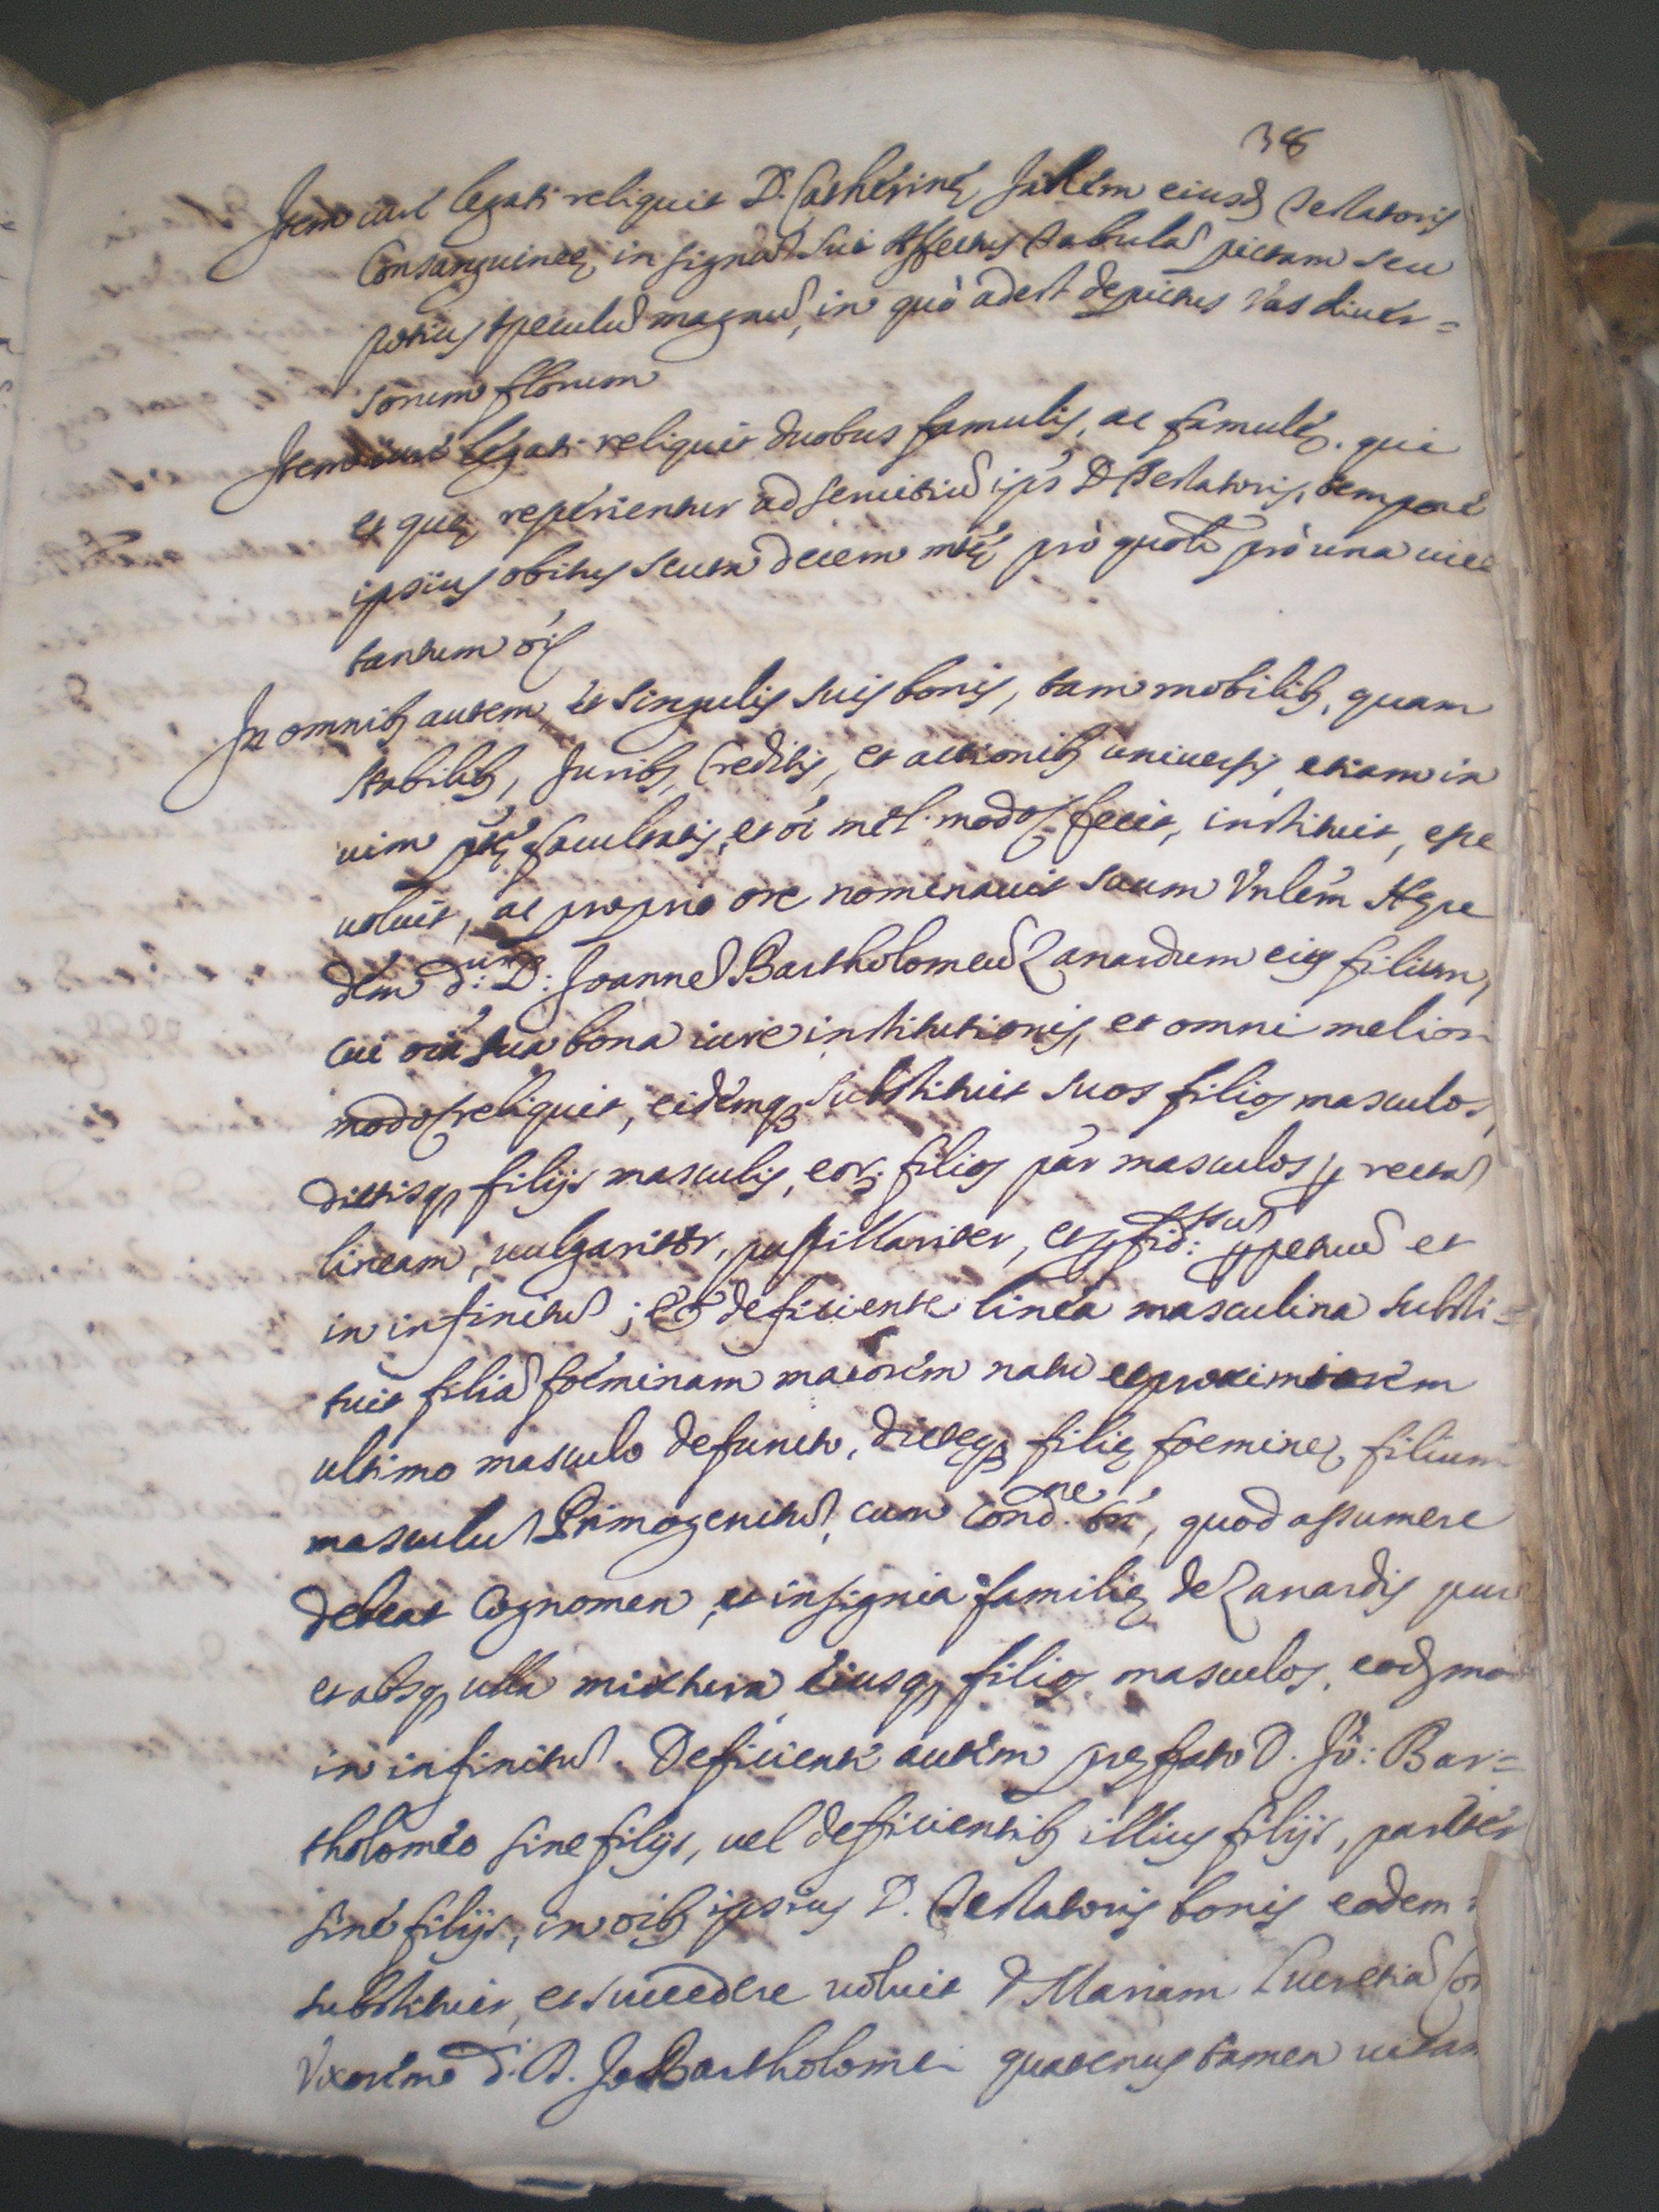 38
Item iure legati reliquit D. Catherinę eiusd Testatoris
Consanguineę, in signũ sui affectus tabulã pictam seu
potius speculũ magnũ, in quò adest depictus vas diuer=
sorum florum
Item iure legati reliquit duobus famulis, ac famulę. qui
et quę reperientur ad seruitiũ ips̃ D Testatoris, tempore
ipsius obitus scuta decem mtę prò quolt prò una uice
tantum oĩs
In omnibꝫ autem, et singulis suis bonis, tam mobilibꝫ, quam
stabilibꝫ, Juribꝫ, Creditis, et actionibꝫ uniuersis, etiam in
uim facultatis, et oĩ mel. modo fecit, instituit, esse
uoluit, ac proprio ore nomenauit suum Vnlem Hęre
dem d: um D: Joannẽ Bartholomeũ Zanardum eius filium,
cui oĩa sua bona iure institutionis, et omni meliori
modo reliquit, eidemqꝫ substituit suos filios masculos,
dictisqꝫ filijs masculis, eorꝫ filios par masculos ꝑ rectã
lineam, uulgariter, pupillariter, et ꝑ fid: ssũ ꝑpetuũ et
in infinitũ; Et deficiente linea masculina substi=
tuit filiã foeminam maiorem natu et proximiorem
ultimo masculo defuncto, dictęqꝫ filię foeminę filium
masculũ Primogenitũ, cum cond. ne tñ, quod assumere
debeat Cognomen, et insignia familię de Zanardis pure
et absqꝫ ulla mixtura, eiusqꝫ filios masculos, eodꝫ mo
in infinitũ. Deficiente autem pręfato D. Jo: Bar=
tholomeo sine filijs, uel deficientibꝫ illius filijs, pariter
sine filijs, in oĩbꝫ ipsius D. Testatoris bonis eodem
substituit, et succedere uoluit D Mariam Lucretiã Co
Vxorem d. D. Jo Bartholomei quatenus tamen uitam